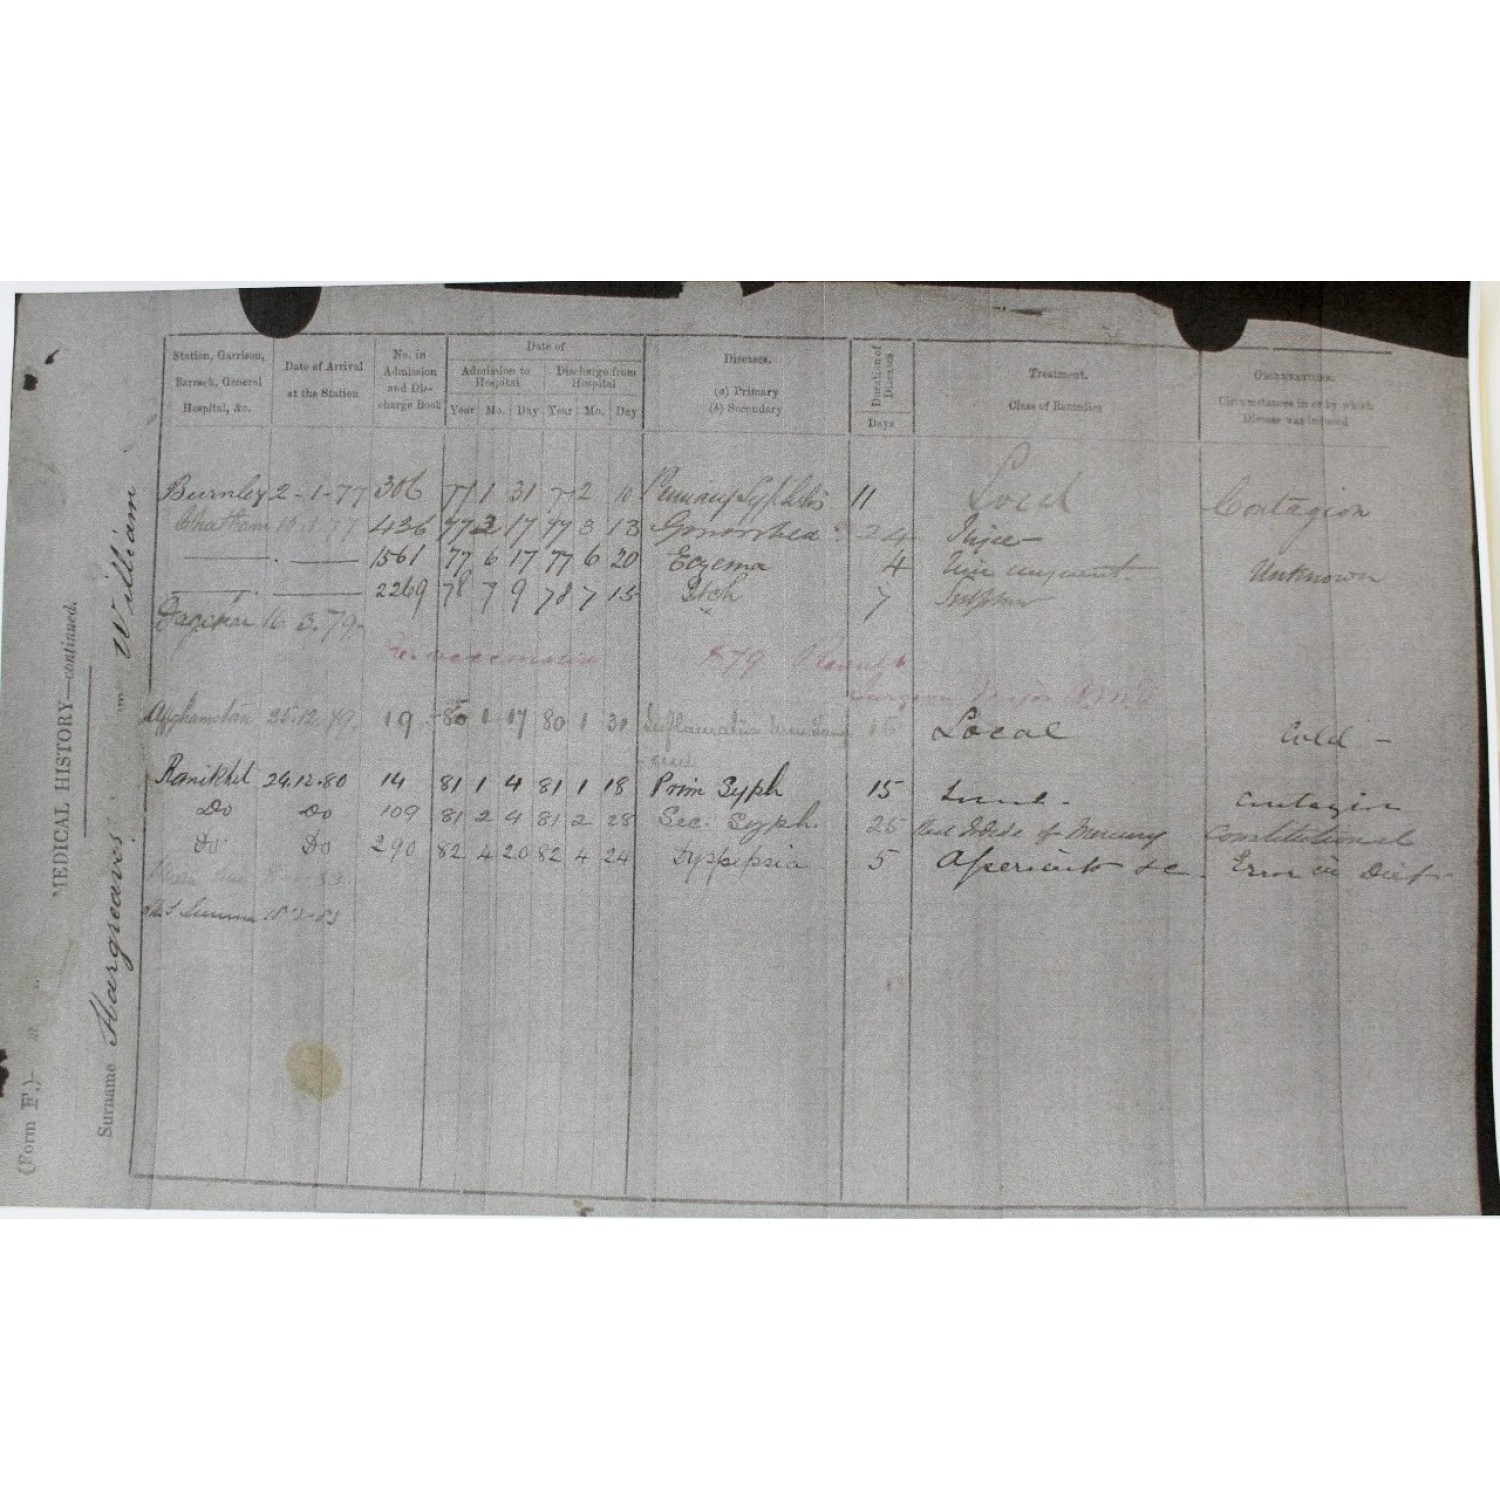 (Form F.)
MEDICAL HISTORY—continued.
Surname Hargreaves William
Station, Garrison, Barrack, General Hospital, &c.
Date of Arrival at the Station
No. in Admission and Discharge Book
Date of
Admission to Hospital
Discharge from Hospital
Year Mo. Day Year Mo. Day
Diseases.
(a) Primary
(b) Secondary
Duration of Diseases.
Days
Treatment.
Class of Remedies
OBSERVATIONS.
Circumstances in or by which Disease was induced
Burnley 2-1-77 306 77 1 31 77 2 10 Primary Syphilis 11 Local Contagion
Chatham 77 436 77 2 17 77 3 13 Gonorrhea 24 Injec
1561 77 6 17 77 6 20 Eczema 4 Zinc unguent Unknown
2269 78 7 9 78 7 15 Itch 7 Sulphur
16 3.79
Re-vaccination 79
Surgeon Major A.M.D.
Afghanistan 25.12.79 19 80 1 17 80 1 31 15 Local Cold —
Ranikhet 24.12.80 14 81 1 4 81 1 18 Prim Syph 15 Contagion
Do Do 109 81 2 4 81 2 28 Sec. Syph. 25 Red Iodide of Mercury Constitutional
Do Do 290 82 4 20 82 4 24 Dyspepsia 5 Aperients &c. Error in Diet
83